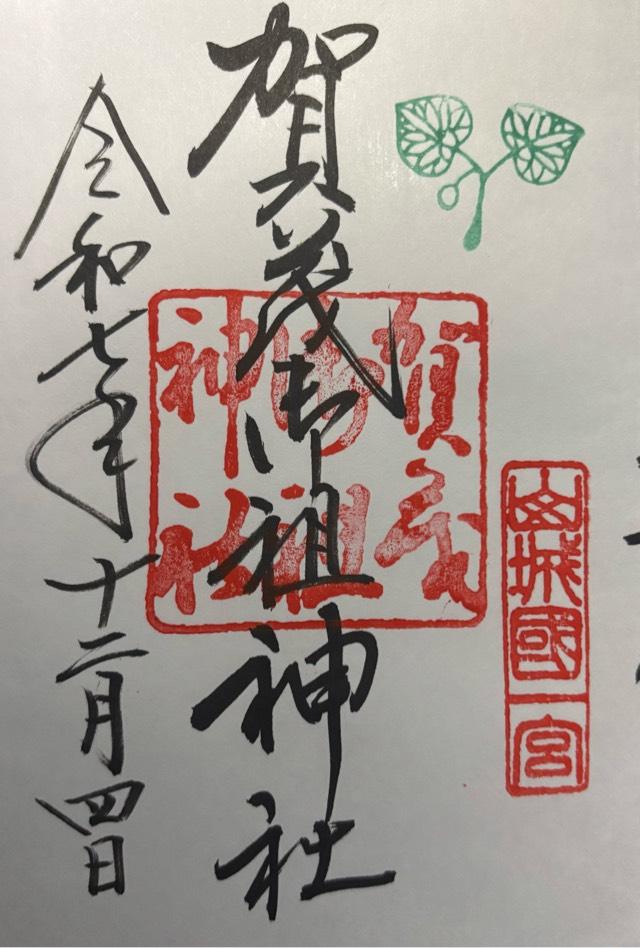 山城國一宮
賀茂御祖神社
賀茂
御祖
神社
令和七年十二月四日